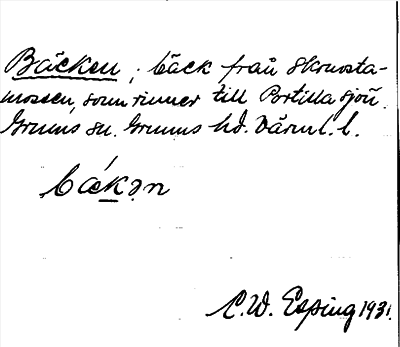 Bäcken, bäck från Skruvsta-
mossen, som rinner till Portilla sjön.
Grums sn. Grums hd. Värml. l.
bǽkən
C. W. Esping 1931.